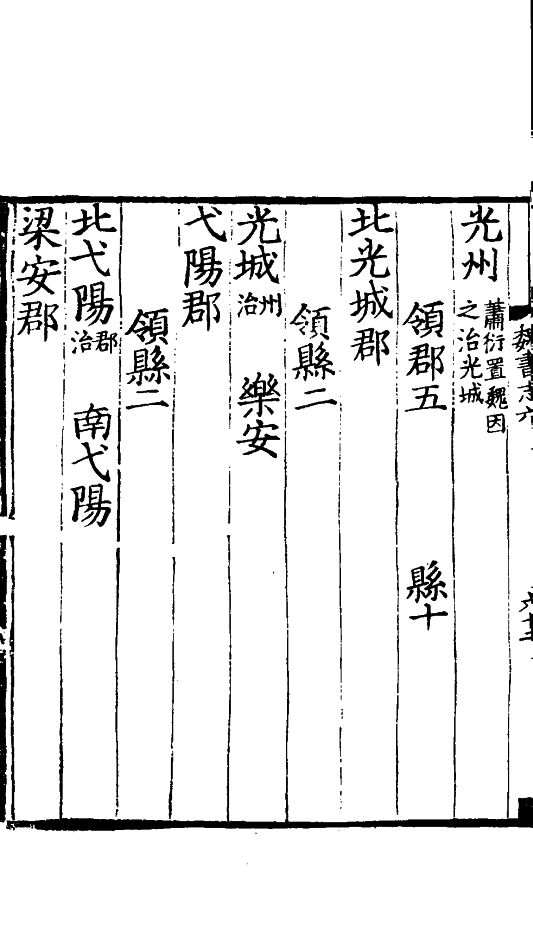 魏書志六
光州蕭衍置魏因之治光城
領郡五 縣十
北光城郡
領縣二
光城州治 樂安
弋陽郡
領縣二
北弋陽郡治 南弋陽
梁安郡